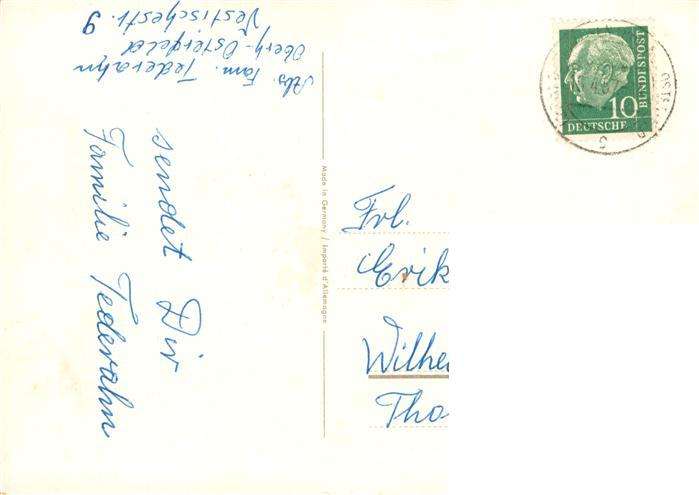 Abs. Fam. Tederahn
Oberh.-Osterfeld
Vestischestr. 9
sendet Dir
Familie Tederahn
Made in Germany / Importé d'Allemagne
10
DEUTSCHE
BUNDESPOST
c
Frl.
Erik
Wilhe
Tho